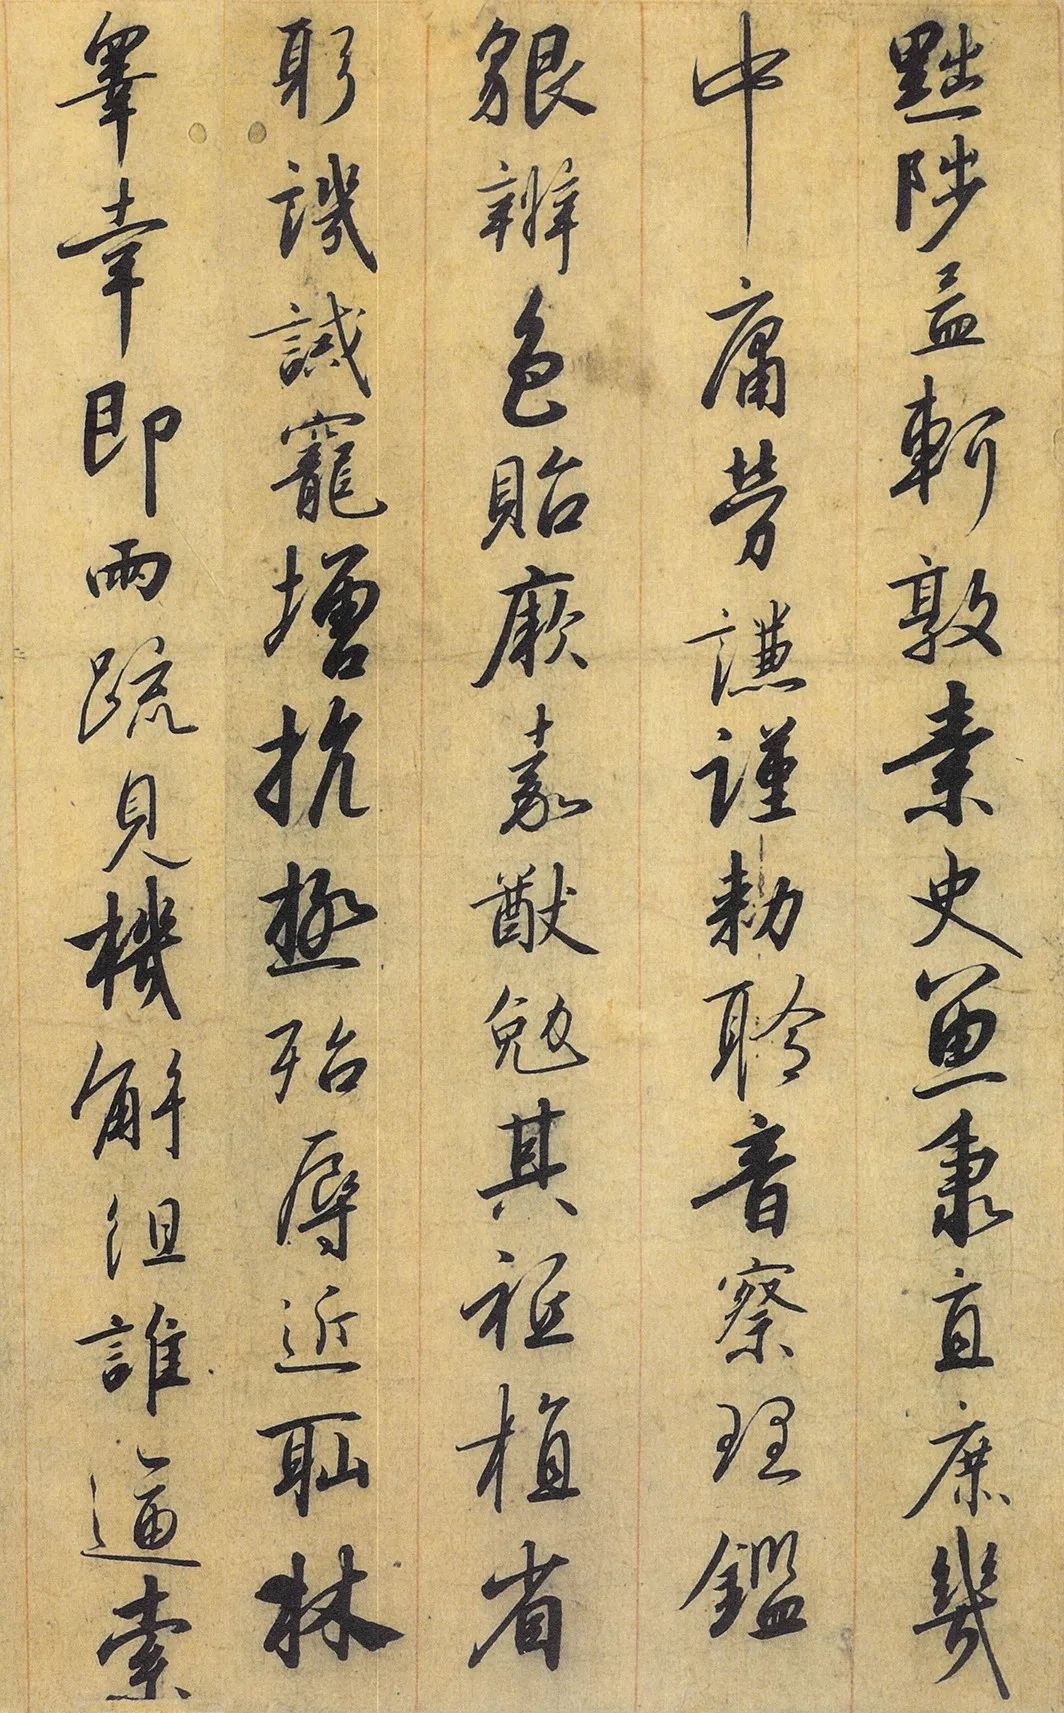 黜陟孟軻敦素史魚秉直庶幾
中庸勞謙謹勑聆音察理鑑
貌辯色貽厥嘉猷勉其祗植省
躬譏誡寵增抗極殆辱近恥林
睪幸即兩疏見機解組誰逼索